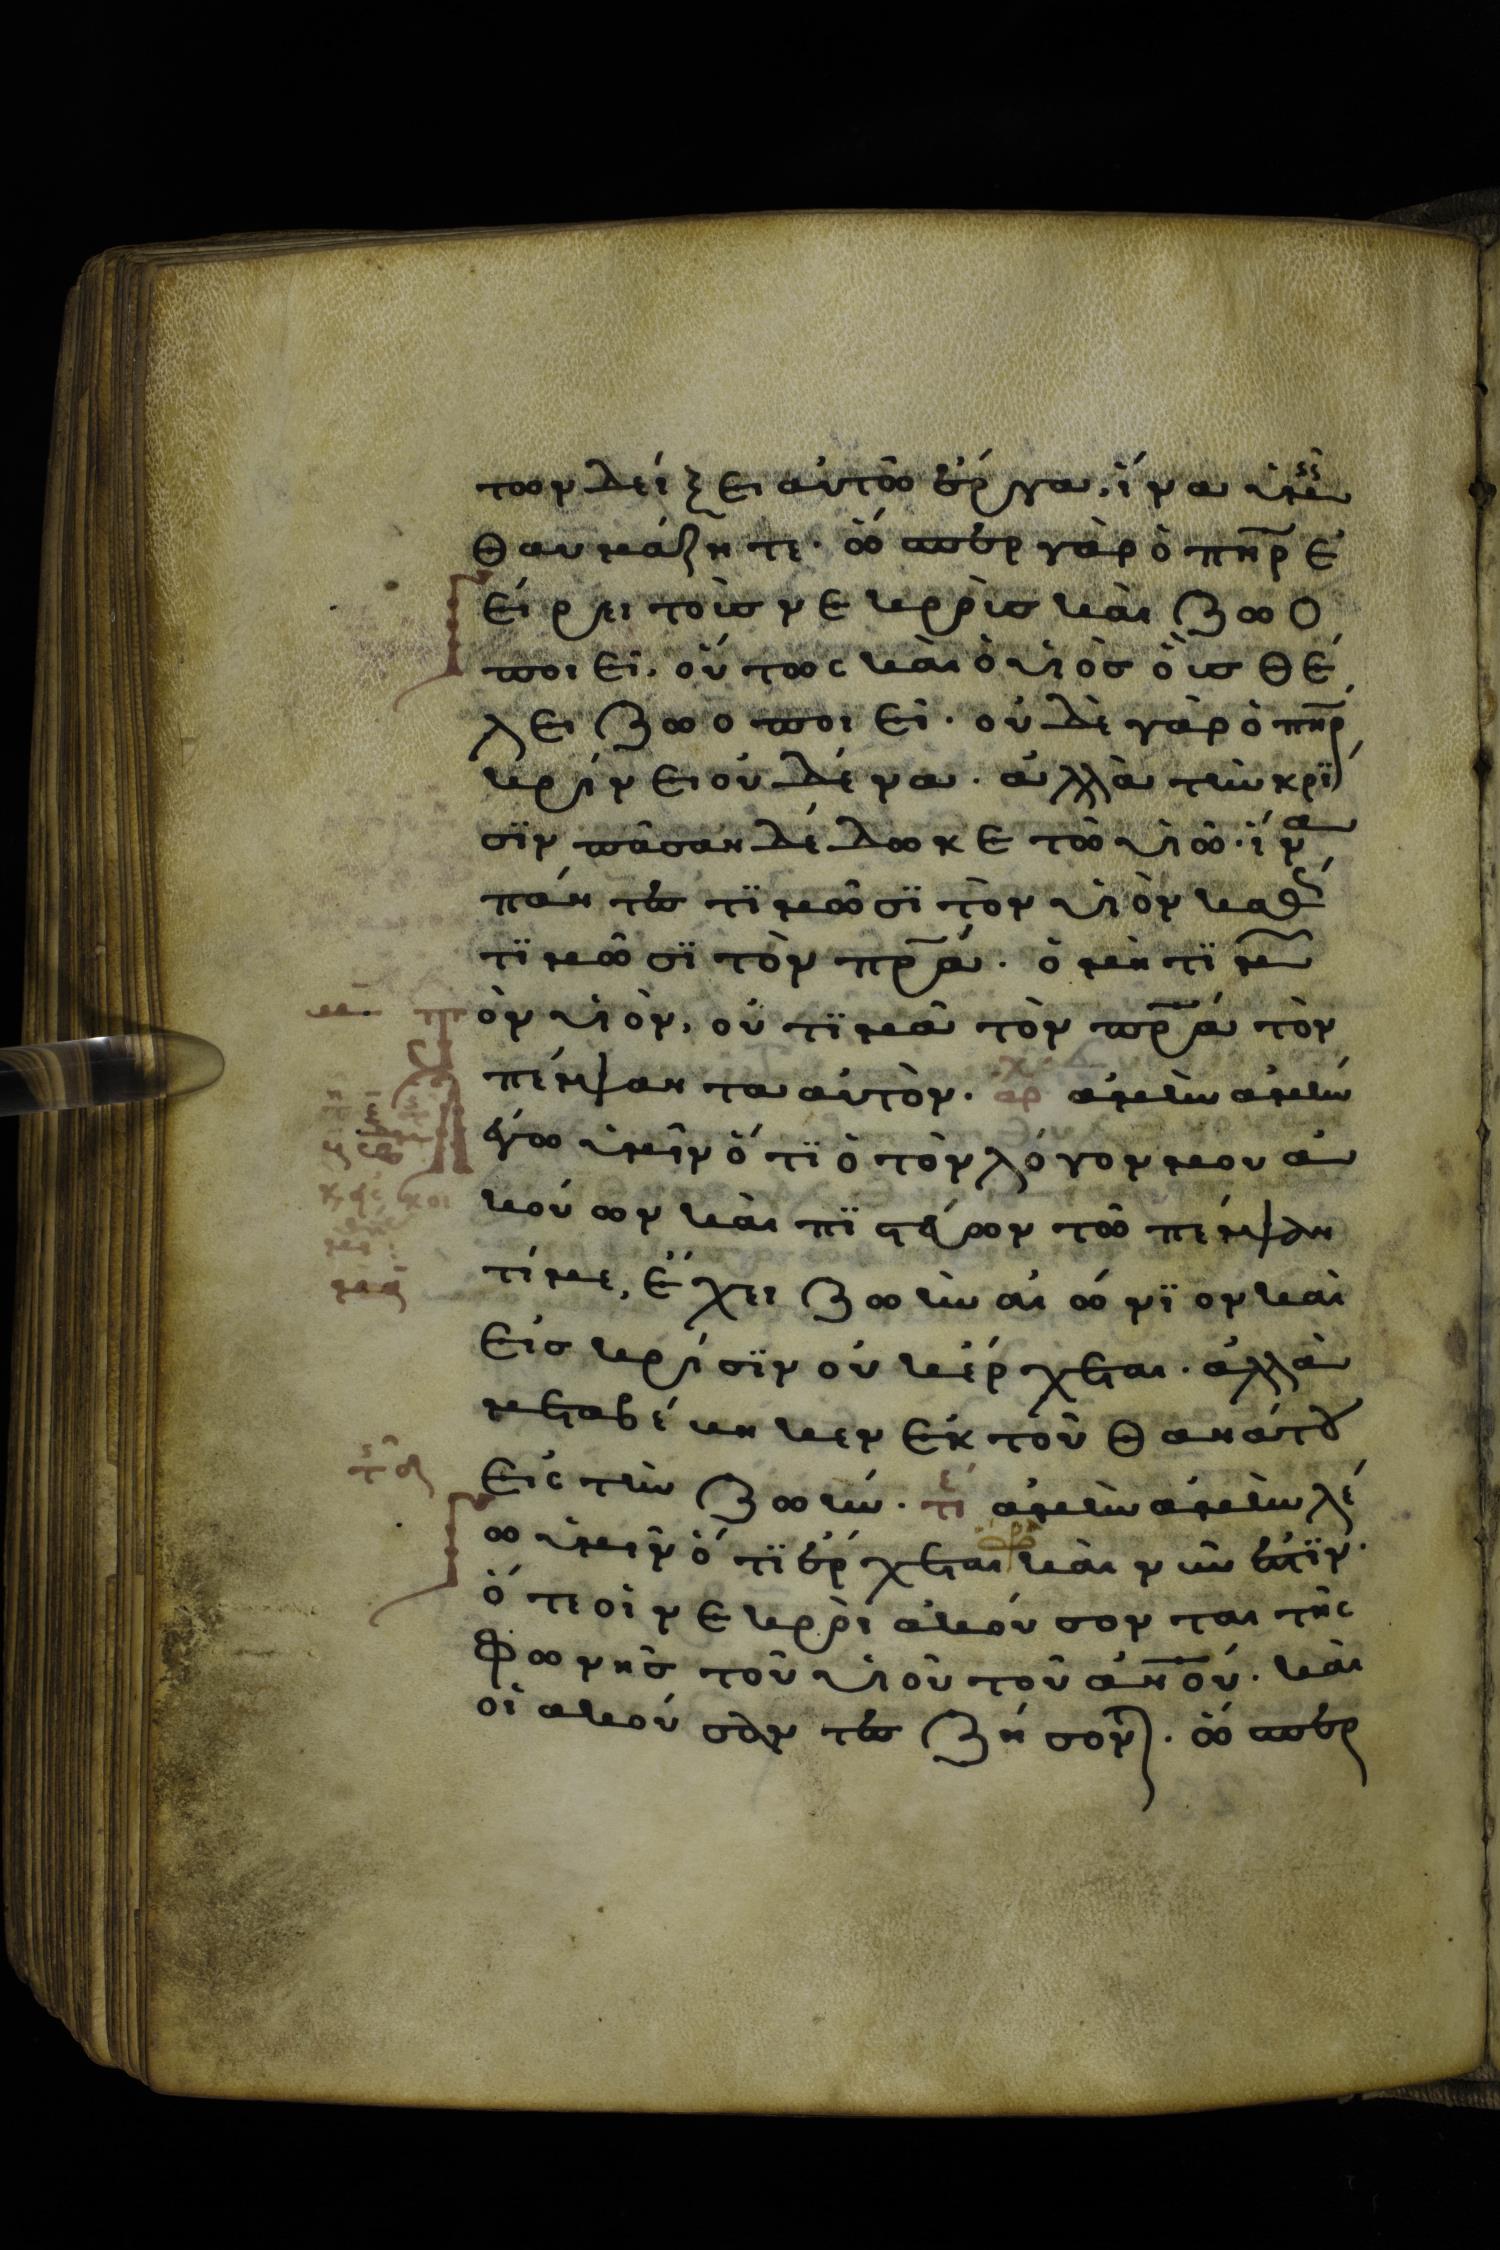 των δείξει αὐτῶ ἔργα, ἵνα ὑμεῖς
θαυμάζητε· ὥσπερ γὰρ ὁ πηρ ἐ
γείρει τοὺς νεκροὺς καὶ ζωο
ποιεῖ, οὕτως καὶ ὁ υἱὸς οὓς θέ
λει ζωοποιεῖ· οὐδὲ γὰρ ὁ πηρ
κρίνει οὐδένα· ἀλλὰ τὴν κρί
σϊν πᾶσαν δέδωκε τῶ υἱῶ· ἵνα
πάντες τϊμῶσϊ τὸν υἱὸν καθὼς
τϊμῶσϊ τὸν πρα· ὁ μὴ τϊμῶν
τὸν υἱὸν, οὐ τϊμᾶ τὸν πρα τὸν
πέμψαντα αὐτὸν· αρχ ἀμὴν ἀμὴν
λέγω ὑμῖν ὅτϊ ὁ τὸν λόγον μου ἀ
κούων καὶ πϊστεύων τῶ πέμψαν
τί με, ἔχει ζωὴν αἰώνϊον καὶ
εἰς κρίσϊν οὐκ ἔρχεται· ἀλλὰ
μεταβέβηκεν ἐκ τοῦ θανάτου
εἰς τὴν ζωήν· τε ἀμὴν ἀμὴν λέ
γω ὑμῖν ὅτϊ ἔρχεται ὥρα καὶ νῦν ἐστϊν·
ὅτε οἱ νεκροὶ ἀκούσονται τῆς
φωνῆς τοῦ υἱοῦ τοῦ ανου· καὶ
οἱ ἀκούσαντες ζήσονται· ὥσπερ